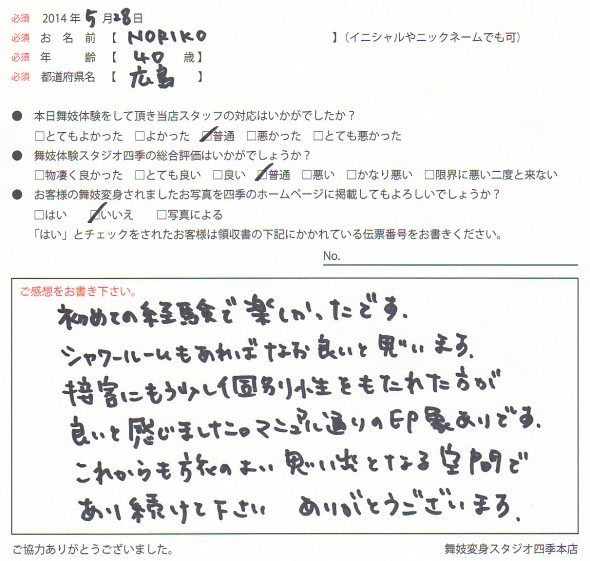 必須 2014年5月28日
必須 お名前【 NORIKO 】(イニシャルやニックネームでも可)
必須 年齢【 40 歳】
必須 都道府県名【 広島 】
● 本日舞妓体験をして頂き当店スタッフの対応はいかがでしたか?
□とてもよかった □よかった ☑普通 □悪かった □とても悪かった
● 舞妓体験スタジオ四季の総合評価はいかがでしょうか?
□物凄く良かった □とても良い □良い ☑普通 □悪い □かなり悪い □限界に悪い二度と来ない
● お客様の舞妓変身されましたお写真を四季のホームページに掲載してもよろしいでしょうか?
□はい ☑いいえ □写真による
「はい」とチェックをされたお客様は領収書の下記にかかれている伝票番号をお書きください。
No.
ご感想をお書き下さい。
初めての経験で楽しかったです。
シャワールームもあればなお良いと思います。
接客にもう少し個別性をもたれた方が
良いと感じました。マニュアル通りの印象ありです。
これからも旅のよい思い出となる空間で
あり続けて下さい ありがとうございます。
ご協力ありがとうございました。
舞妓変身スタジオ四季本店